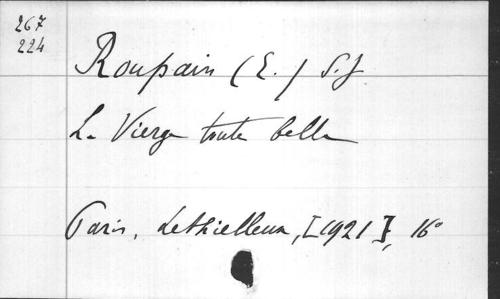 267
224
Roupain (E.) S.J
La Vierge toute belle
Paris, Lethielleux, [1921], 16°